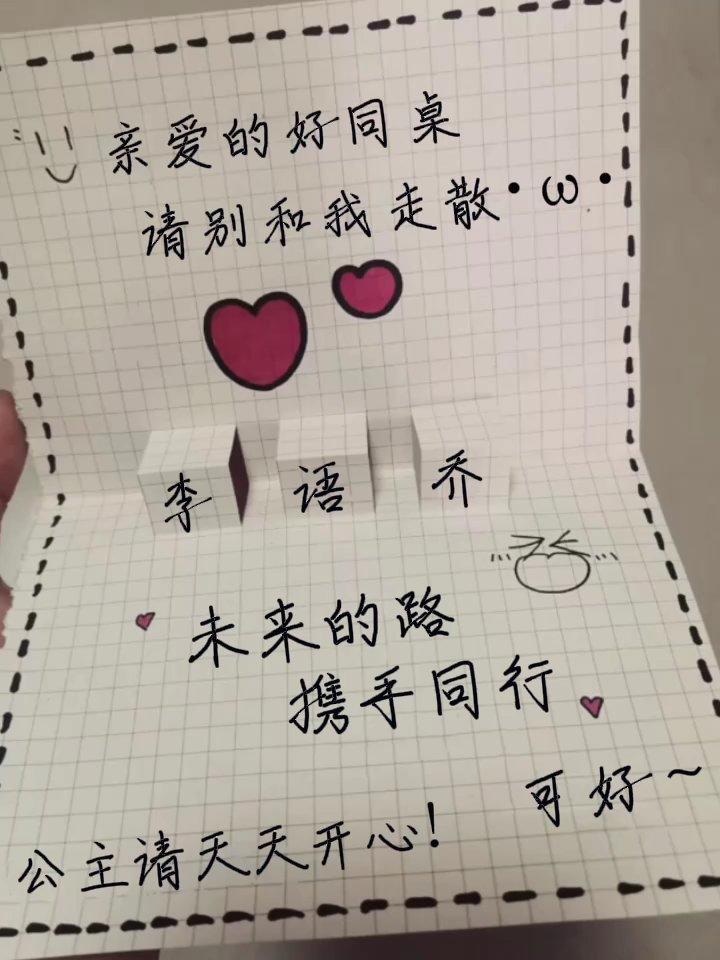 亲爱的好同桌
请别和我走散•ω•
李语乔
未来的路
携手同行
可好~
公主请天天开心!